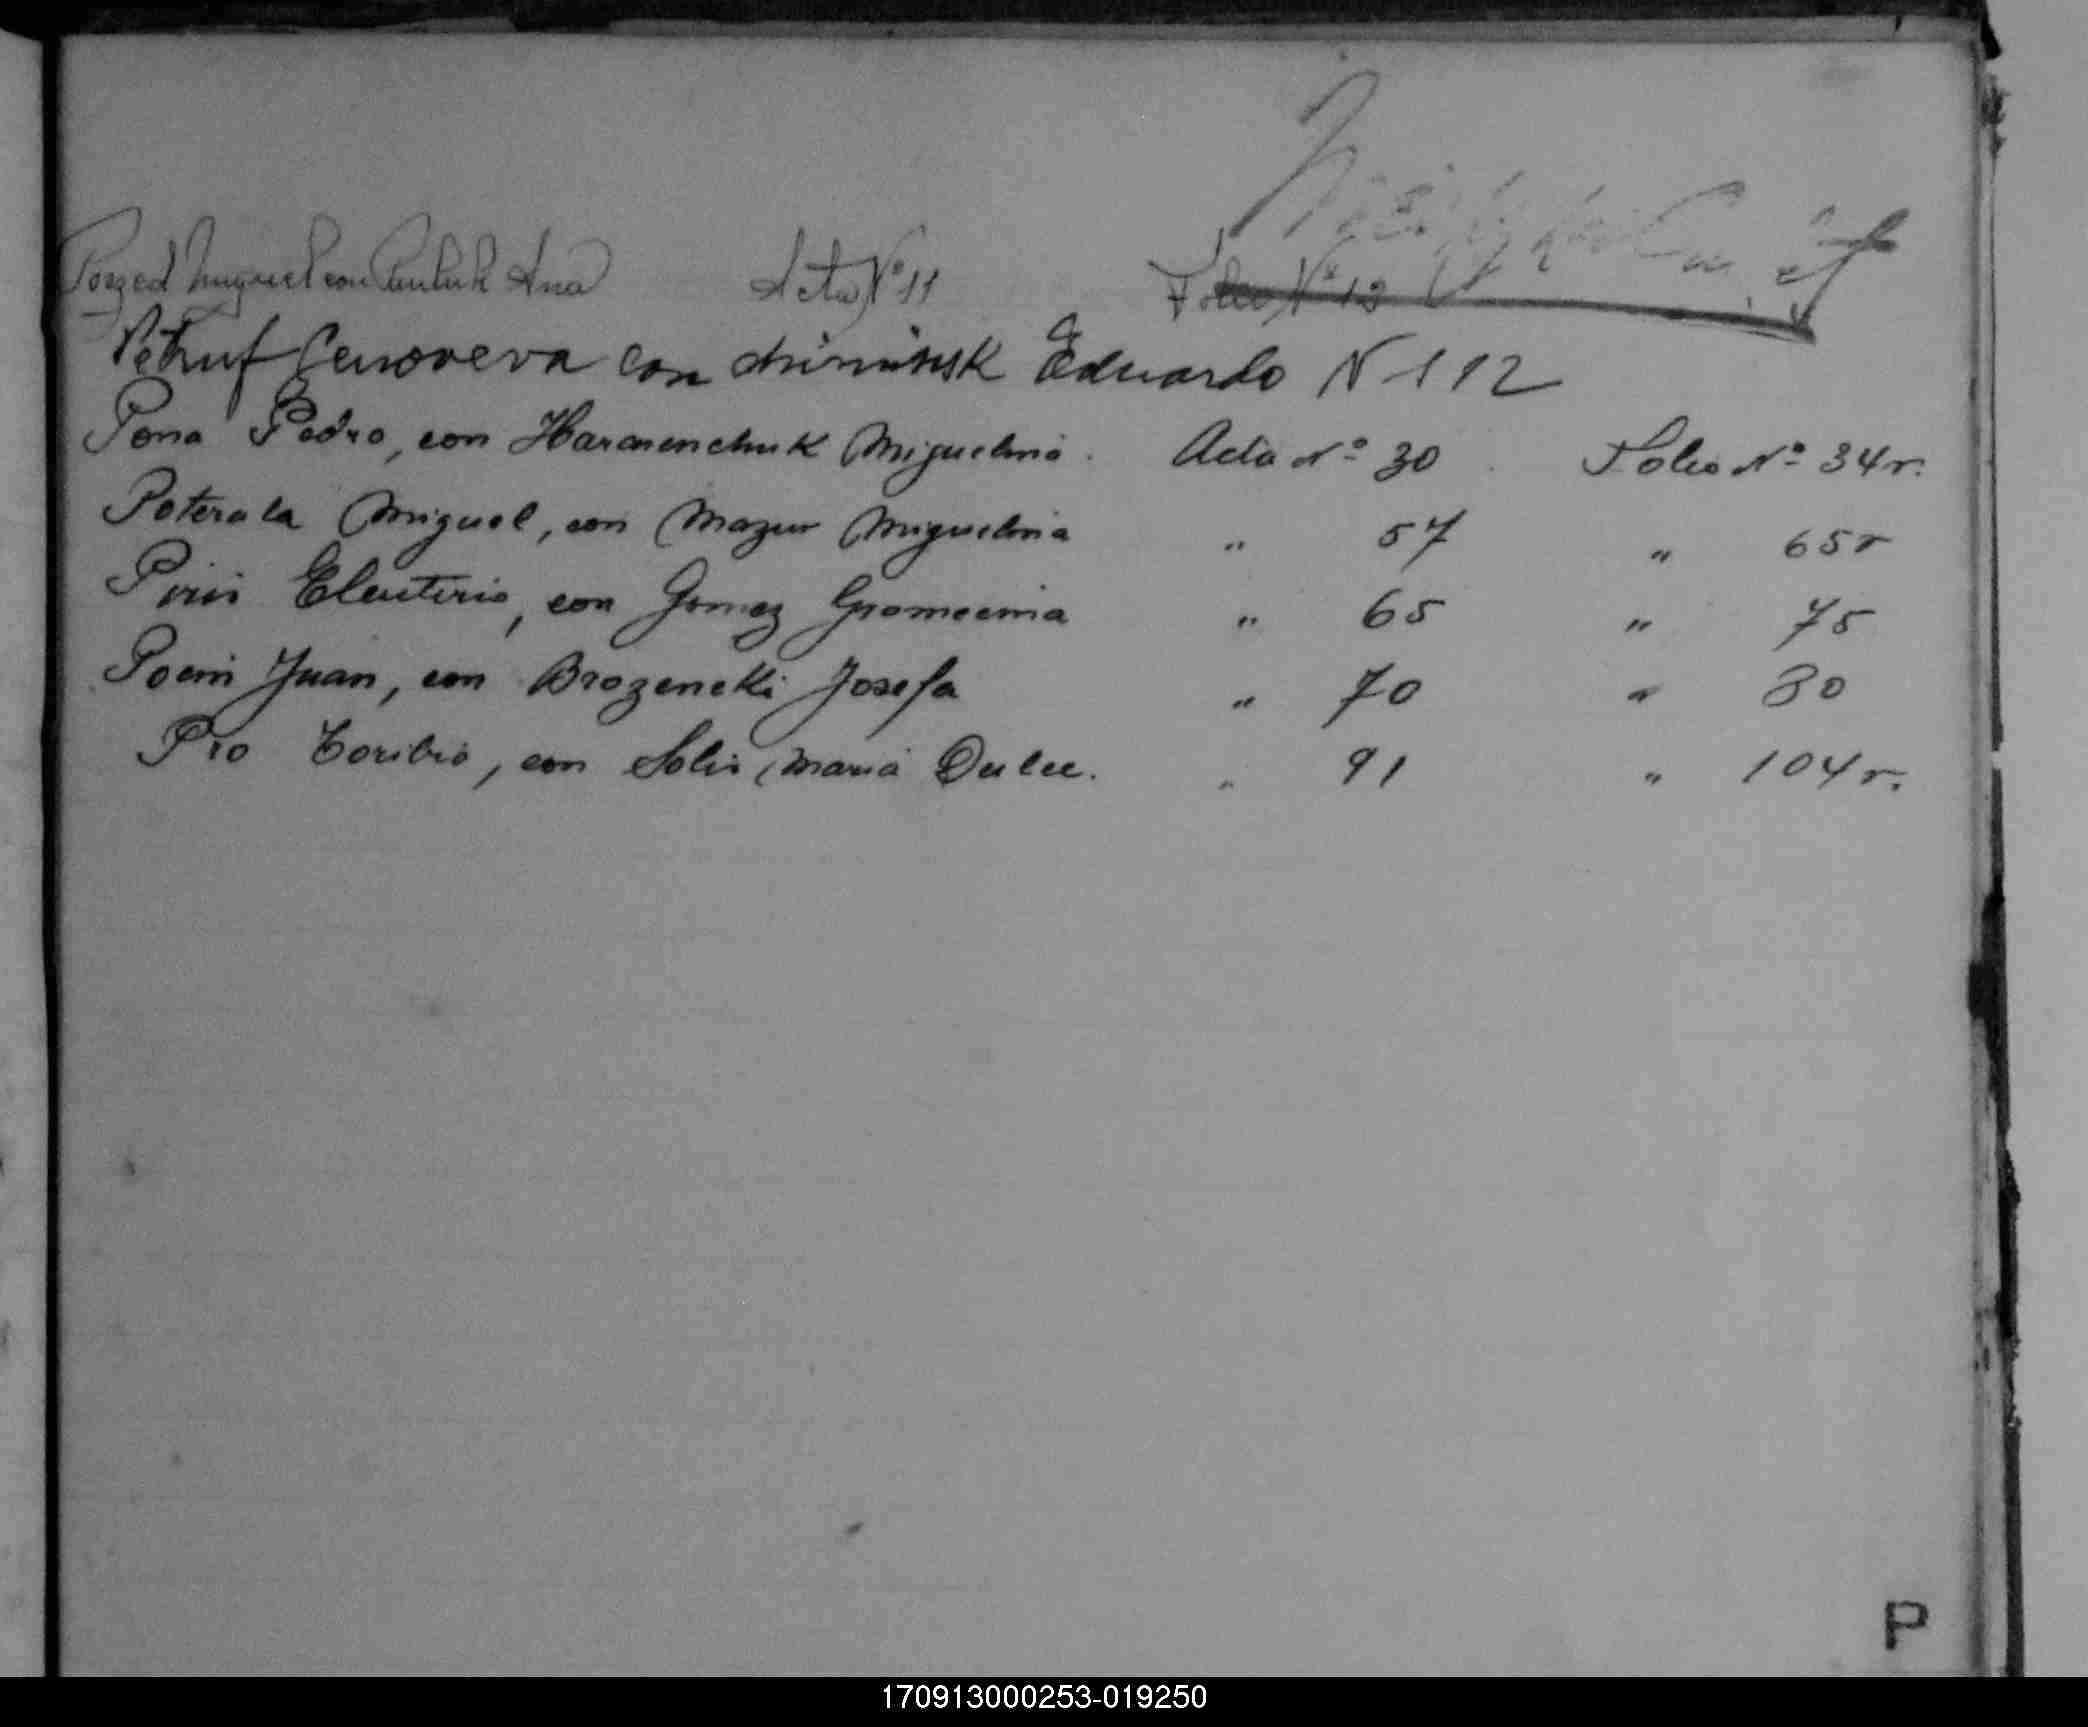 Pozzed Miguel con Pauluk Ana Acta Nº 11 Folio Nº 13
Petruf Genoveva con Eduardo N 112
Pona Pedro, con Haramenchuk Miguelina. Acta Nº 30 Folio Nº 34 r.
Poterala Miguel, con Mazur Miguelina " 57 " 65 r
Piris Eleuterio, con Gomez " 65 " 75
Poein Juan, con Brozencki Josefa " 70 " 80
Pro Toribio, con Solis Maria Dulce. " 91 " 104 r.
P
170913000253-019250